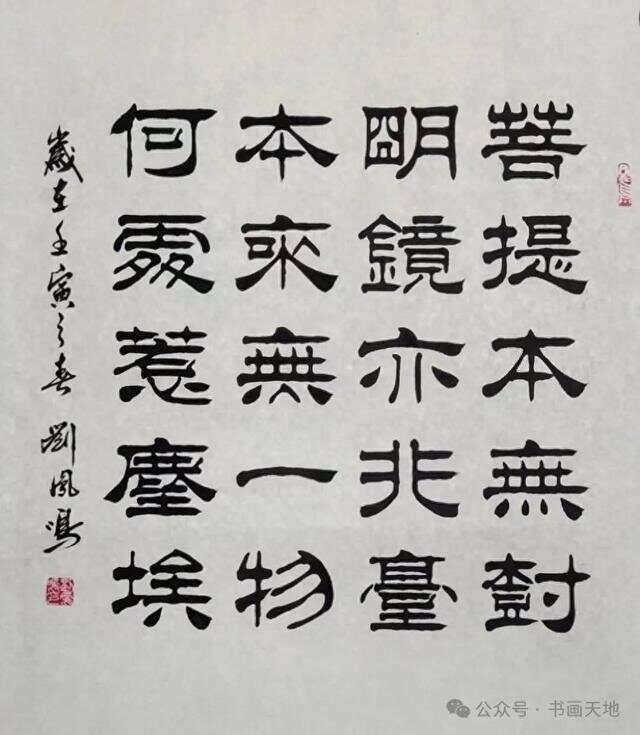 菩提本無尌
朙鏡亦非臺
本來無一物
何處惹塵埃
歲在壬寅之春 劉鳳鳴
公众号 · 书画天地